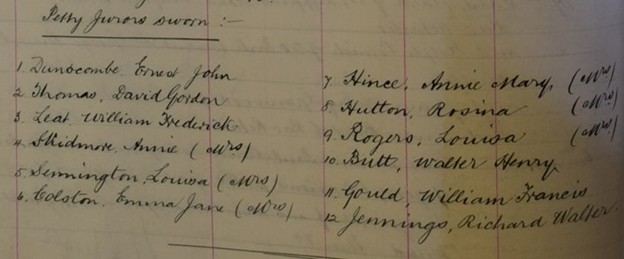 Petty Jurors sworn :-
1 Dunscombe, Ernest John
2 Thomas, David Gordon
3 Leat William Frederick
4 Skidmore, Annie (Mrs)
5 Sennington, Louisa (Mrs)
6 Colston, Emma Jane (Mrs)
7 Hince, Annie Mary, (Mrs)
8 Hutton, Rosina (Mrs)
9 Rogers, Louisa (Mrs)
10 Butt, Walter Henry
11 Gould, William Francis
12 Jennings, Richard Walter